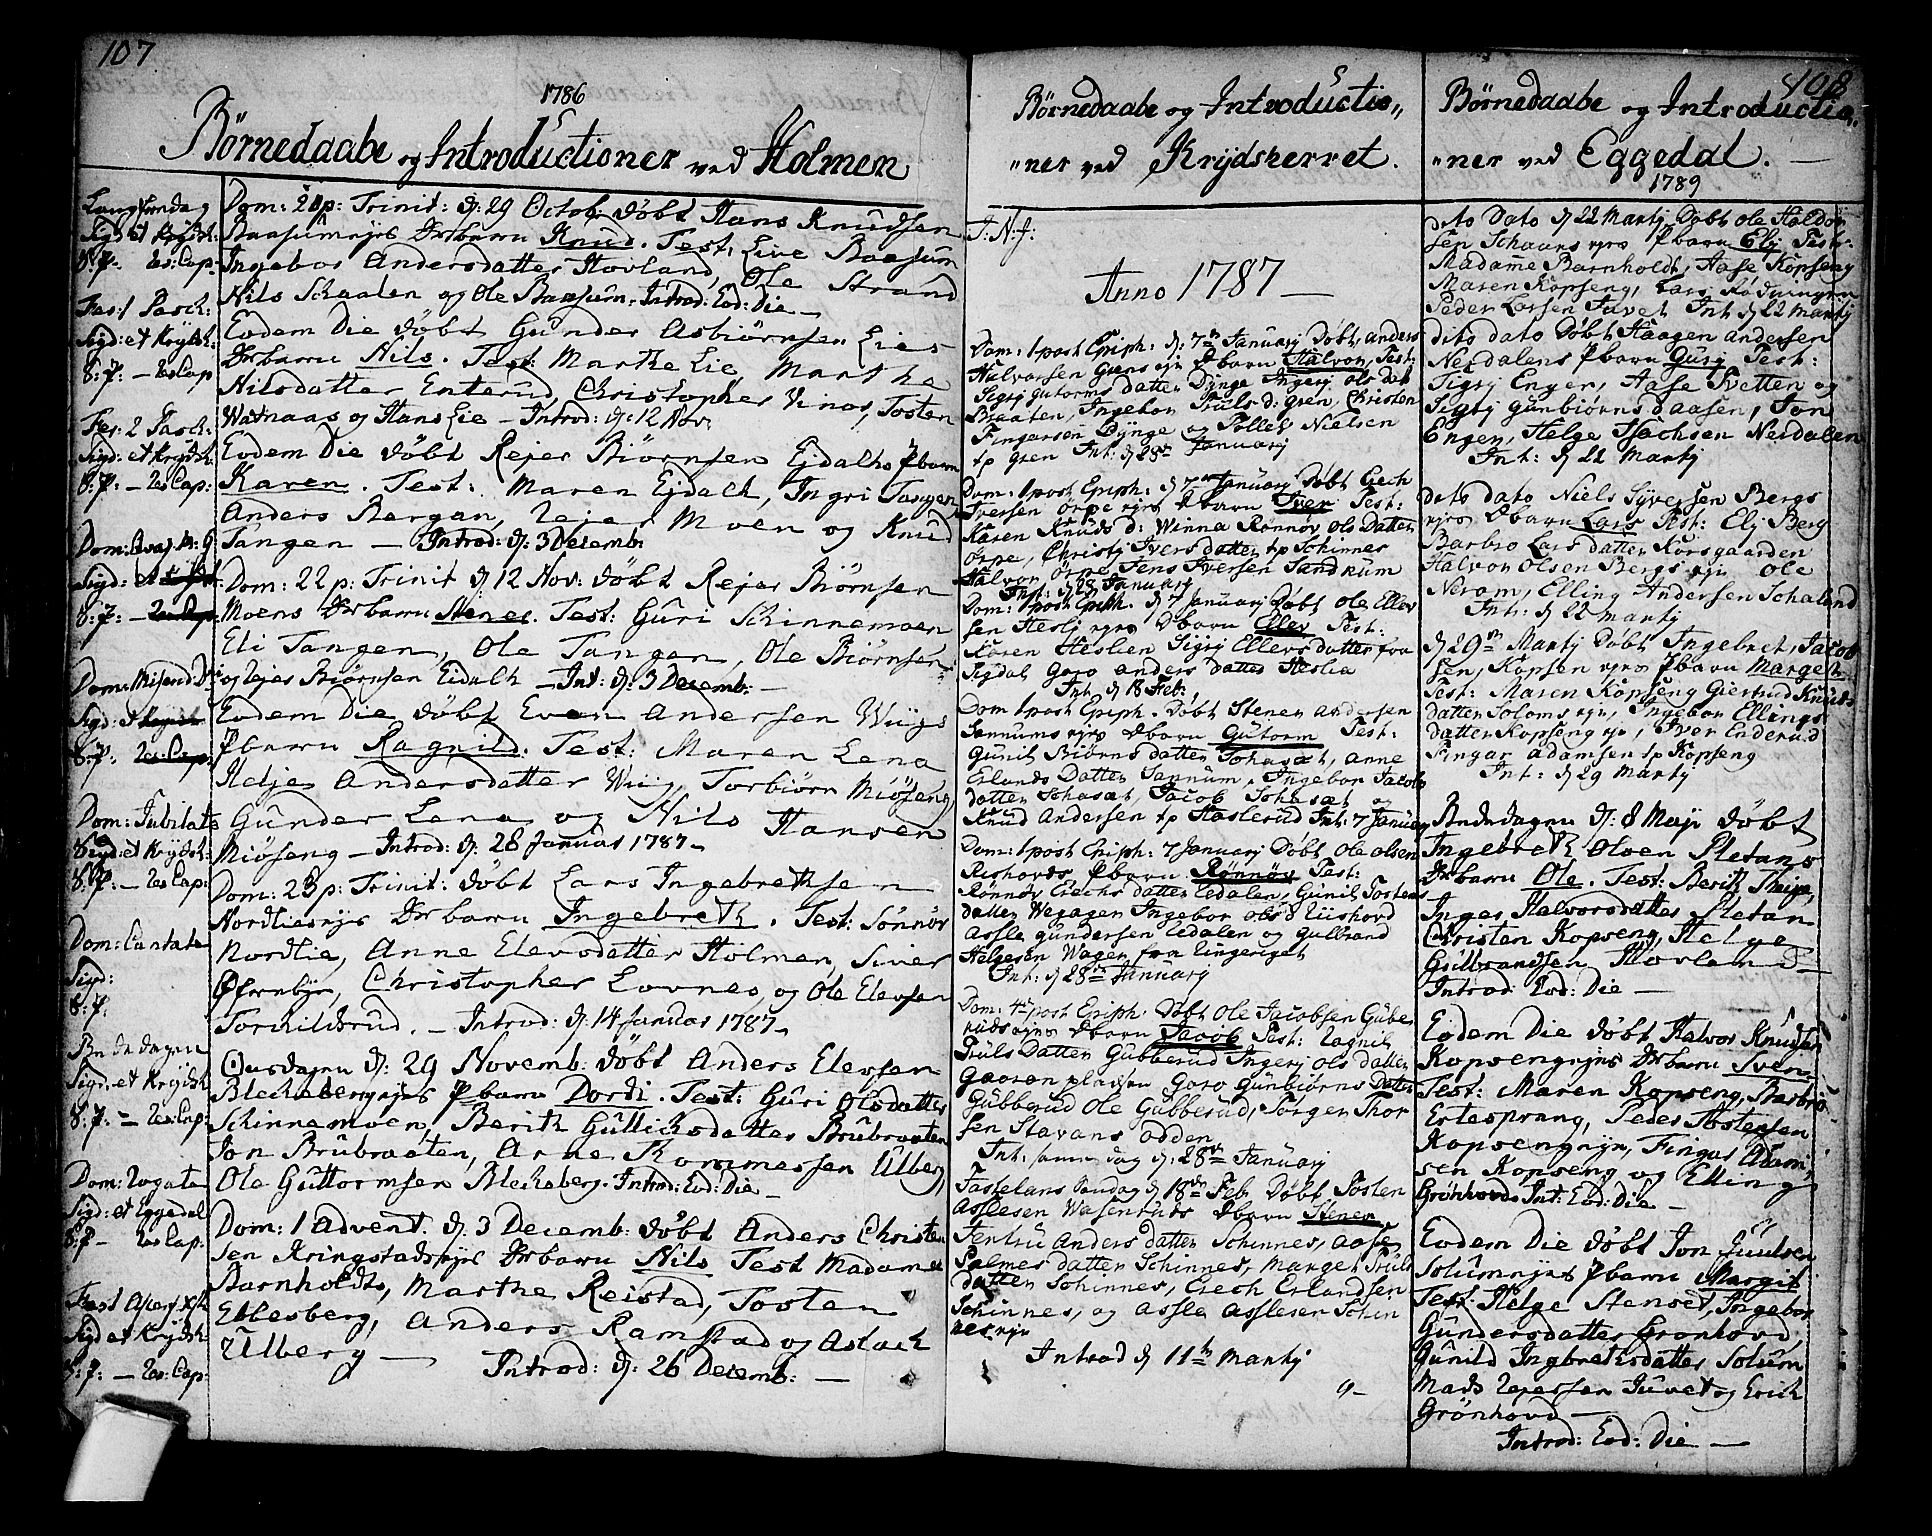 107
1786
Børnedaabe og Introductioner ved Holmen
Sigd: et Krydsh:
8:7:
Fer: 1 Pasch:
Sigd: et Krydsh:
8:7: — Res Cap
Fer: 2 Pasch:
Sigd: et Krydsh
8:7: — Res Cap:
Sigd:
8:7: — Res Cap
Dom: Miseric: D:
Sigd:
8:7: Res: Cap
Dom: Jubilate
Sigd: et Krydsh:
8:7: — Res Cap:
Dom: Cantate
Sigd:
8:7.
Bededagen
Sigd: et Krydsh
8:7: — Res Cap:
Dom: Rogate
Sigd: et Eggedal
8:7 — Res Cap:
Sigd et Krydsh
8:7: — Res: Cap:
Dom: 20 p: Trinit: d: 29 Octob: døbt Hans Knudsen
Baasumejes Drbarn Knud. Test: Live Baasum
Ingebor Andersdatter Hovland, Ole Strand
Nils Schaalen og Ole Baasum. Introd: Eod: Die —
Eodem Die døbt Gunder Asbiørnsen Lies
Drbarn Nils. Test: Marthe Lie, Marthe
Nilsdatter Enterud, Christopher Vinor, Tosten
Watnaas og Hans Lie — Introd: d: 12 Nov:
Eodem Die døbt Rejer Biørnsen Ejdalhs Pbarn
Karen. Test: Maren Ejdalh, Ingri Tangen
Anders Bergan, Rejer Moen og Knud
Tangen — Introd: d: 3 Decemb:
Dom: 22 p: Trinit d 12 Nov: døbt Rejer Biørnsen
Moens Drbarn Stener. Test: Guri Schinnemoen
Eli Tangen, Ole Tangen, Ole Biørnsen
og Rejer Biørnsen Eidalh — Int: d: 3 Decemb: —
Eodem Die døbt Even Andersen Wiigs
Pbarn Ragnild. Test: Maren Lena
Helje Andersdatter Wiig, Torbiørn Miøseng
Gunder Lena og Nils Hansen
Miøseng — Introd: d: 28 Januar 1787 —
Dom: 23 p: Trinit: døbt Lars Ingebrethsen
Nordliesejes Drbarn Ingebreth. Test: Sønnøv
Nordlie, Anne Elevsdatter Holmen, Siver
Øfernbye, Christopher Lovnes, og Ole Elevsen
Tormildsrud. — Introd: d: 14 Januar 1787.
Onsdagen d: 29 Novemb: døbt Anders Elevsen
Blechebergsejes Pbarn Dordi. Test: Guri Olsdatter
Schinnemoen, Berith Gullichsdatter Brubraaten
Jon Brubraaten, Arne Rommessen Ulberg,
Ole Guttormsen Blecheberg. Introd: Eod: Die —
Dom: 1 Advent d: 3 Decemb: døbt Anders Christen
sen Kringstadsejes Drbarn Nils Test Madame
Barnholdts, Marthe Reistad, Tosten
Eblesberg, Anders Ramstad og Aslach
Ulberg — Introd: d: 26 Decemb: —
Børnedaabe og Introductio„
„ner ved Krydskerret.
J. N. J:
Anno 1787 —
Dom: 1 post Epiph: d: 7de Januarj Døbt Anders
Halvorsen Grens eje Dbarn Halvor, Test:
Sigrj Gutorms datter Dynge Ingerj Ols dat
Braaten, Ingebor Truls d: Gren, Christen
Fingarsen Dynge og Pollet Nielsen
tp Gren Int: d 28de Januarj
Dom: 1 post Epiph: d 7de Januarj Døbt Erch
Iversen Örpe ejes Dbarn Iver Test:
Karen Knuds d: Winna Rønnøv Ols Datter
Örpe, Christj Ivers datter tp Schinnes
Halvor Örpe Jens Iversen Sandrum
Int: d 28 Januarj
Dom: 1 post Epiph. d 7 Januarj Døbt Ole Ellev
sen Heslj ejes Dbarn Ellev Test:
Karen Heslien Sigrj Ellevs datter fra
Sigdal Goro Anders datter Heslia
Int d 18 Feb:
Dom 1 post Epiph. Døbt Stener Andersen
Sannums ejes Dbarn Gutorm Test:
Gunil Biørns datter Schasæt, Anne
Erlands Datter Sannum, Ingebor Jacobs
datter Schasæt, Jacob Schasæt og
Knud Andersen tp Haslerud Int: 7 Januarj
Dom: 1 post Epiph: 7 Januarj Døbt Ole Olsen
Rishovds Pbarn Rønnøv Test:
Rønnøv Erechs datter Eedalen, Gunil Tostens
datter Wegagen Ingebor Ols d Riishovd
Assle Gundersen Eedalen og Gulbrand
Helgesen Wagen fra Ringeriget
Int: d 28de Januarj
Dom: 4de post Epiph: Døbt Ole Jacobsen Gube
ruds ejes Dbarn Jacob Test: Ragnil
Truls Datter Gubberud Ingerj Ols datter
Gaaren pladsen Goro Gunbiørns Datter
Gubberud Ole Gubberud, Jørgen Thor
sen Stavans odden
Int: samme dag d: 28de Januarj
Fastelans Søndag d 18de Feb Døbt Tosten
Asslesen Wasenruds Dbarn Stener
Jentru Anders datter Schinnes, Aase
Palmes datter Schinnes, Marget Truls
datter Schinnes, Erech Erlandsen
Schinnes, og Assle Asslesen Schin
nes eje
Introd d 11te Martj
108
Børnedaabe og Introductio„
„ner ved Eggedal. —
1789
dito Dato d 22 Martj Døbt Ole Haldor
sen Schaans ejes Pbarn Elj Test:
Madamme Barnholdt, Aase Kopseng
Maren Kopseng, Lars Rødningen
Peder Larsen Juvet Int d 22 Martj
dito dato Døbt Haagen Andersen
Nerdalens Pbarn Gurj Test:
Sigrj Enger, Aase Tvetten og
Sigrj Gunbiørns daasen, Jon
Engen, Helge Isachsen Nerdalen
Int: d 22 Martj
dito dato Niels Syversen Bergs
ejes Dbarn Lars Test: Elj Berg
Barbro Lars datter Korsgaarden
Halvor Olsen Bergs eje Ole
Neram, Elling Andersen Schaland
Int: d 22 Martj
d 29de Martj Døbt Ingebret Jacob
sen, Kopsen ejes Pbarn Margeth
Test: Maren Kopseng Giertrud Knuds
datter Soloms eje, Ingebor Ellings
datter Kopseng eje, Iver Enderud
Fingar Adamsen tp Kopseng
Int: d 29 Martj
Bededagen d: 8 Maji døbt
Ingebreth Olsen Sletans
Drbarn Ole. Test: Berith Theige,
Inger Halvorsdatter Sletan
Christen Kopseng, Helge
Gulbrandsen Hovland —
Introd Eod: Die —
Eodem Die døbt Halvor Knudsen
Kopsengejes Drbarn Sven
Test: Maren Kopseng, Barbro
Ertesprang, Peder Tostensen
Kopsengeje, Fingar Adam
sen Kopseng og Elling
Grønhovd. Int: Eod: Die —
Eodem Die døbt Jon Juulsen
Solumejes Pbarn Margit
Test: Helge Stenset, Ingebor
Gundersdatter Grønhovd,
Gunild Ingbrethsdatter Solum
Mads Rejersen Juvet og Erich
Grønhovd —
Introd: Eod: Die —